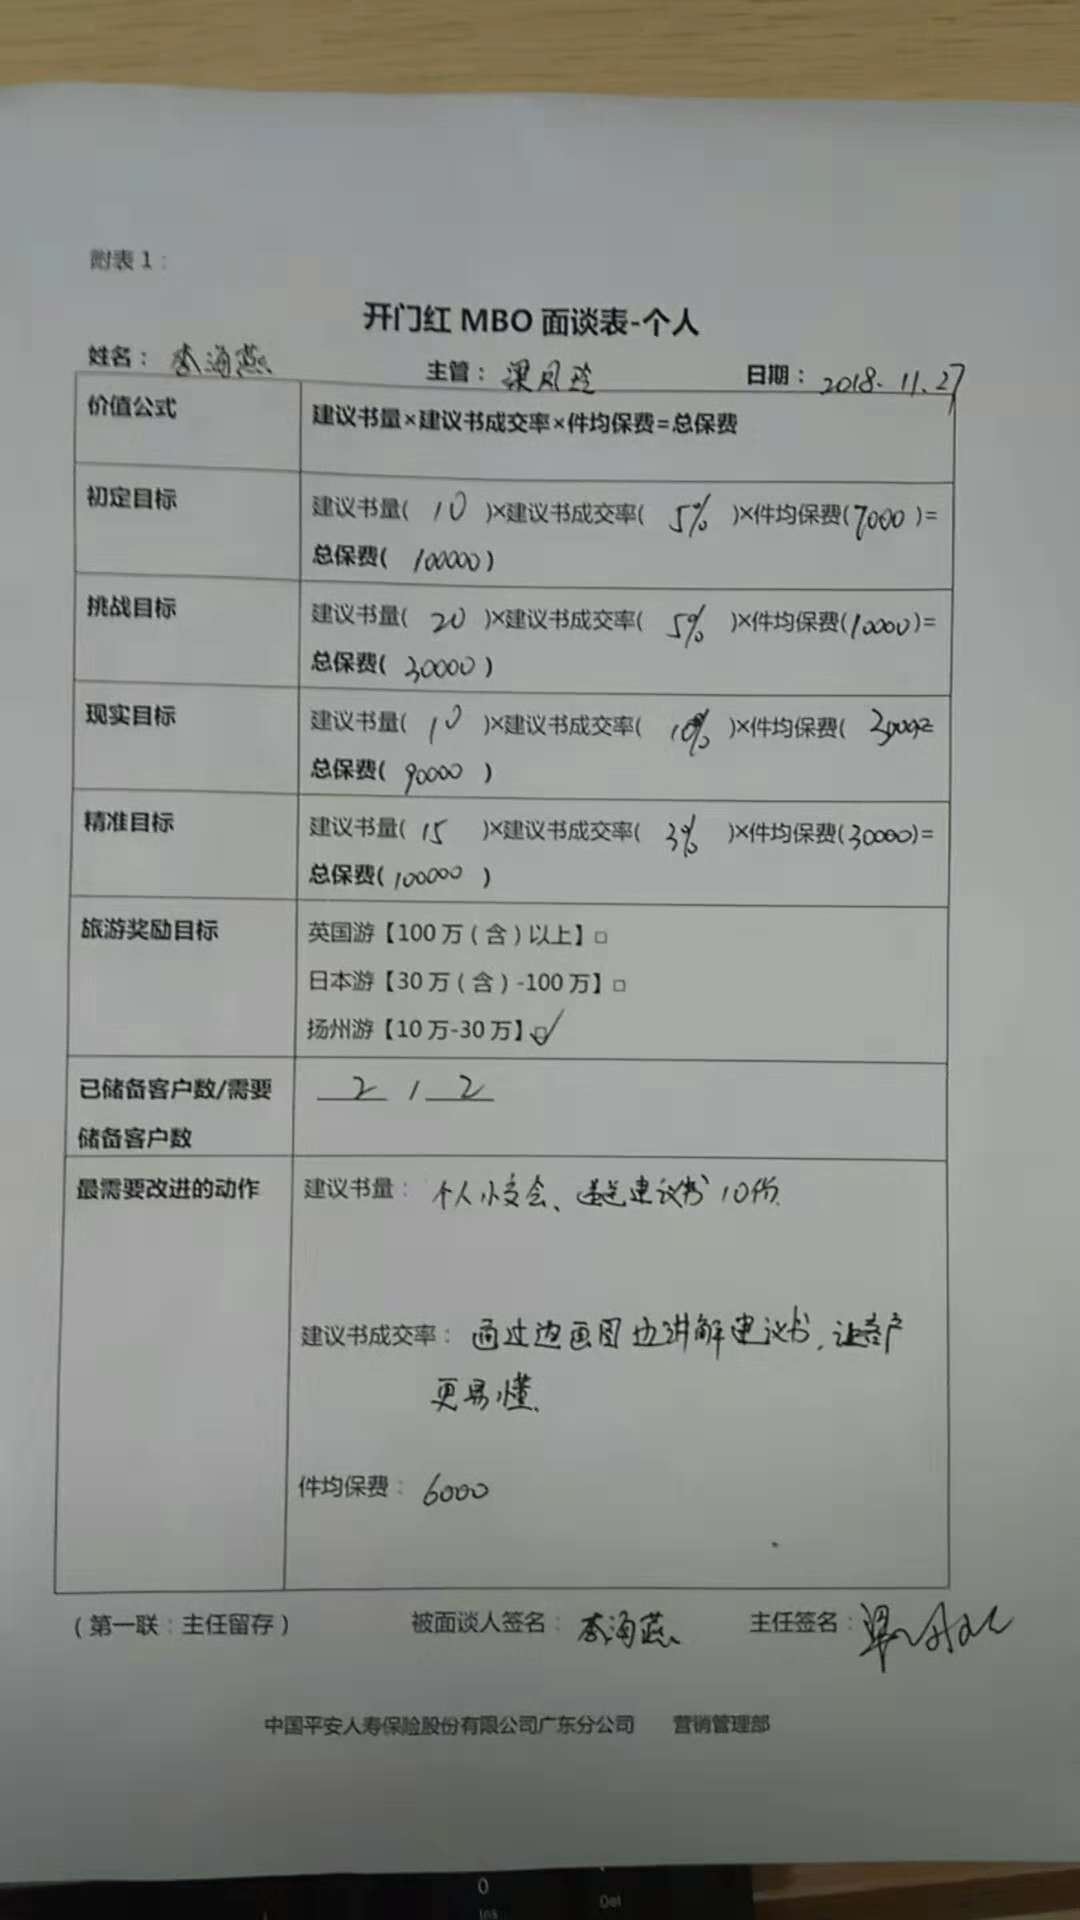 附表 1：
开门红 MBO 面谈表-个人
姓名： 李海燕 主管： 梁凤玲 日期： 2018.11.27
价值公式 建议书量×建议书成交率×件均保费=总保费
初定目标 建议书量( 10 )×建议书成交率( 5% )×件均保费(7000 )=
总保费( 100000 )
挑战目标 建议书量( 20 )×建议书成交率( 5% )×件均保费(10000)=
总保费( 30000 )
现实目标 建议书量( 10 )×建议书成交率( 10% )×件均保费(
总保费( 90000 )
精准目标 建议书量( 15 )×建议书成交率( 3% )×件均保费(30000)=
总保费(100000 )
旅游奖励目标 英国游【100 万（含）以上】□
日本游【30 万（含）-100 万】□
扬州游【10 万-30 万】□✓
已储备客户数/需要 2 / 2
储备客户数
最需要改进的动作 建议书量： 个人小交会、递送建议书 10份.
建议书成交率： 通过边画图边讲解建议书，让客户
更易懂.
件均保费： 6000
（第一联：主任留存） 被面谈人签名： 李海燕 主任签名：
中国平安人寿保险股份有限公司广东分公司 营销管理部
0
Ins
Del